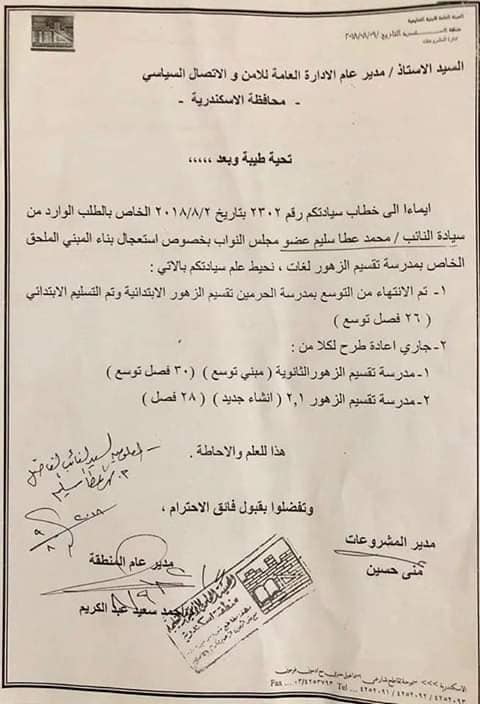 الهيئة العامة للأبنية التعليمية
السيد الاستاذ / مدير عام الادارة العامة للامن و الاتصال السياسي
- محافظة الاسكندرية -
تحية طيبة وبعد ,,,,,
ايماءا الى خطاب سيادتكم رقم ٢٣٠٢ بتاريخ ٢٠١٨/٨/٢ الخاص بالطلب الوارد من
سيادة النائب / محمد عطا سليم عضو مجلس النواب بخصوص استعجال بناء المبني الملحق
الخاص بمدرسة تقسيم الزهور لغات ، نحيط علم سيادتكم بالاتي :
١- تم الانتهاء من التوسع بمدرسة الحرمين تقسيم الزهور الابتدائية وتم التسليم الابتدائي
( ٢٦ فصل توسع )
٢- جاري اعادة طرح لكلا من :
١- مدرسة تقسيم الزهور الثانوية ( مبني توسع ) (٣٠ فصل توسع )
٢- مدرسة تقسيم الزهور ٢,١ ( انشاء جديد ) ( ٢٨ فصل )
هذا للعلم والاحاطة .
وتفضلوا بقبول فائق الاحترام ،
مدير المشروعات
منى حسين
مدير عام المنطقة
احمد سعيد عبد الكريم
منطقة اسكندرية
Fax ... ٠٣/٤٢٥٣٧٩٣ Tel ... ٤٢٥٢٠٩١ / ٤٢٥٢٠٩٢ / ٤٢٥٢٠٩٣